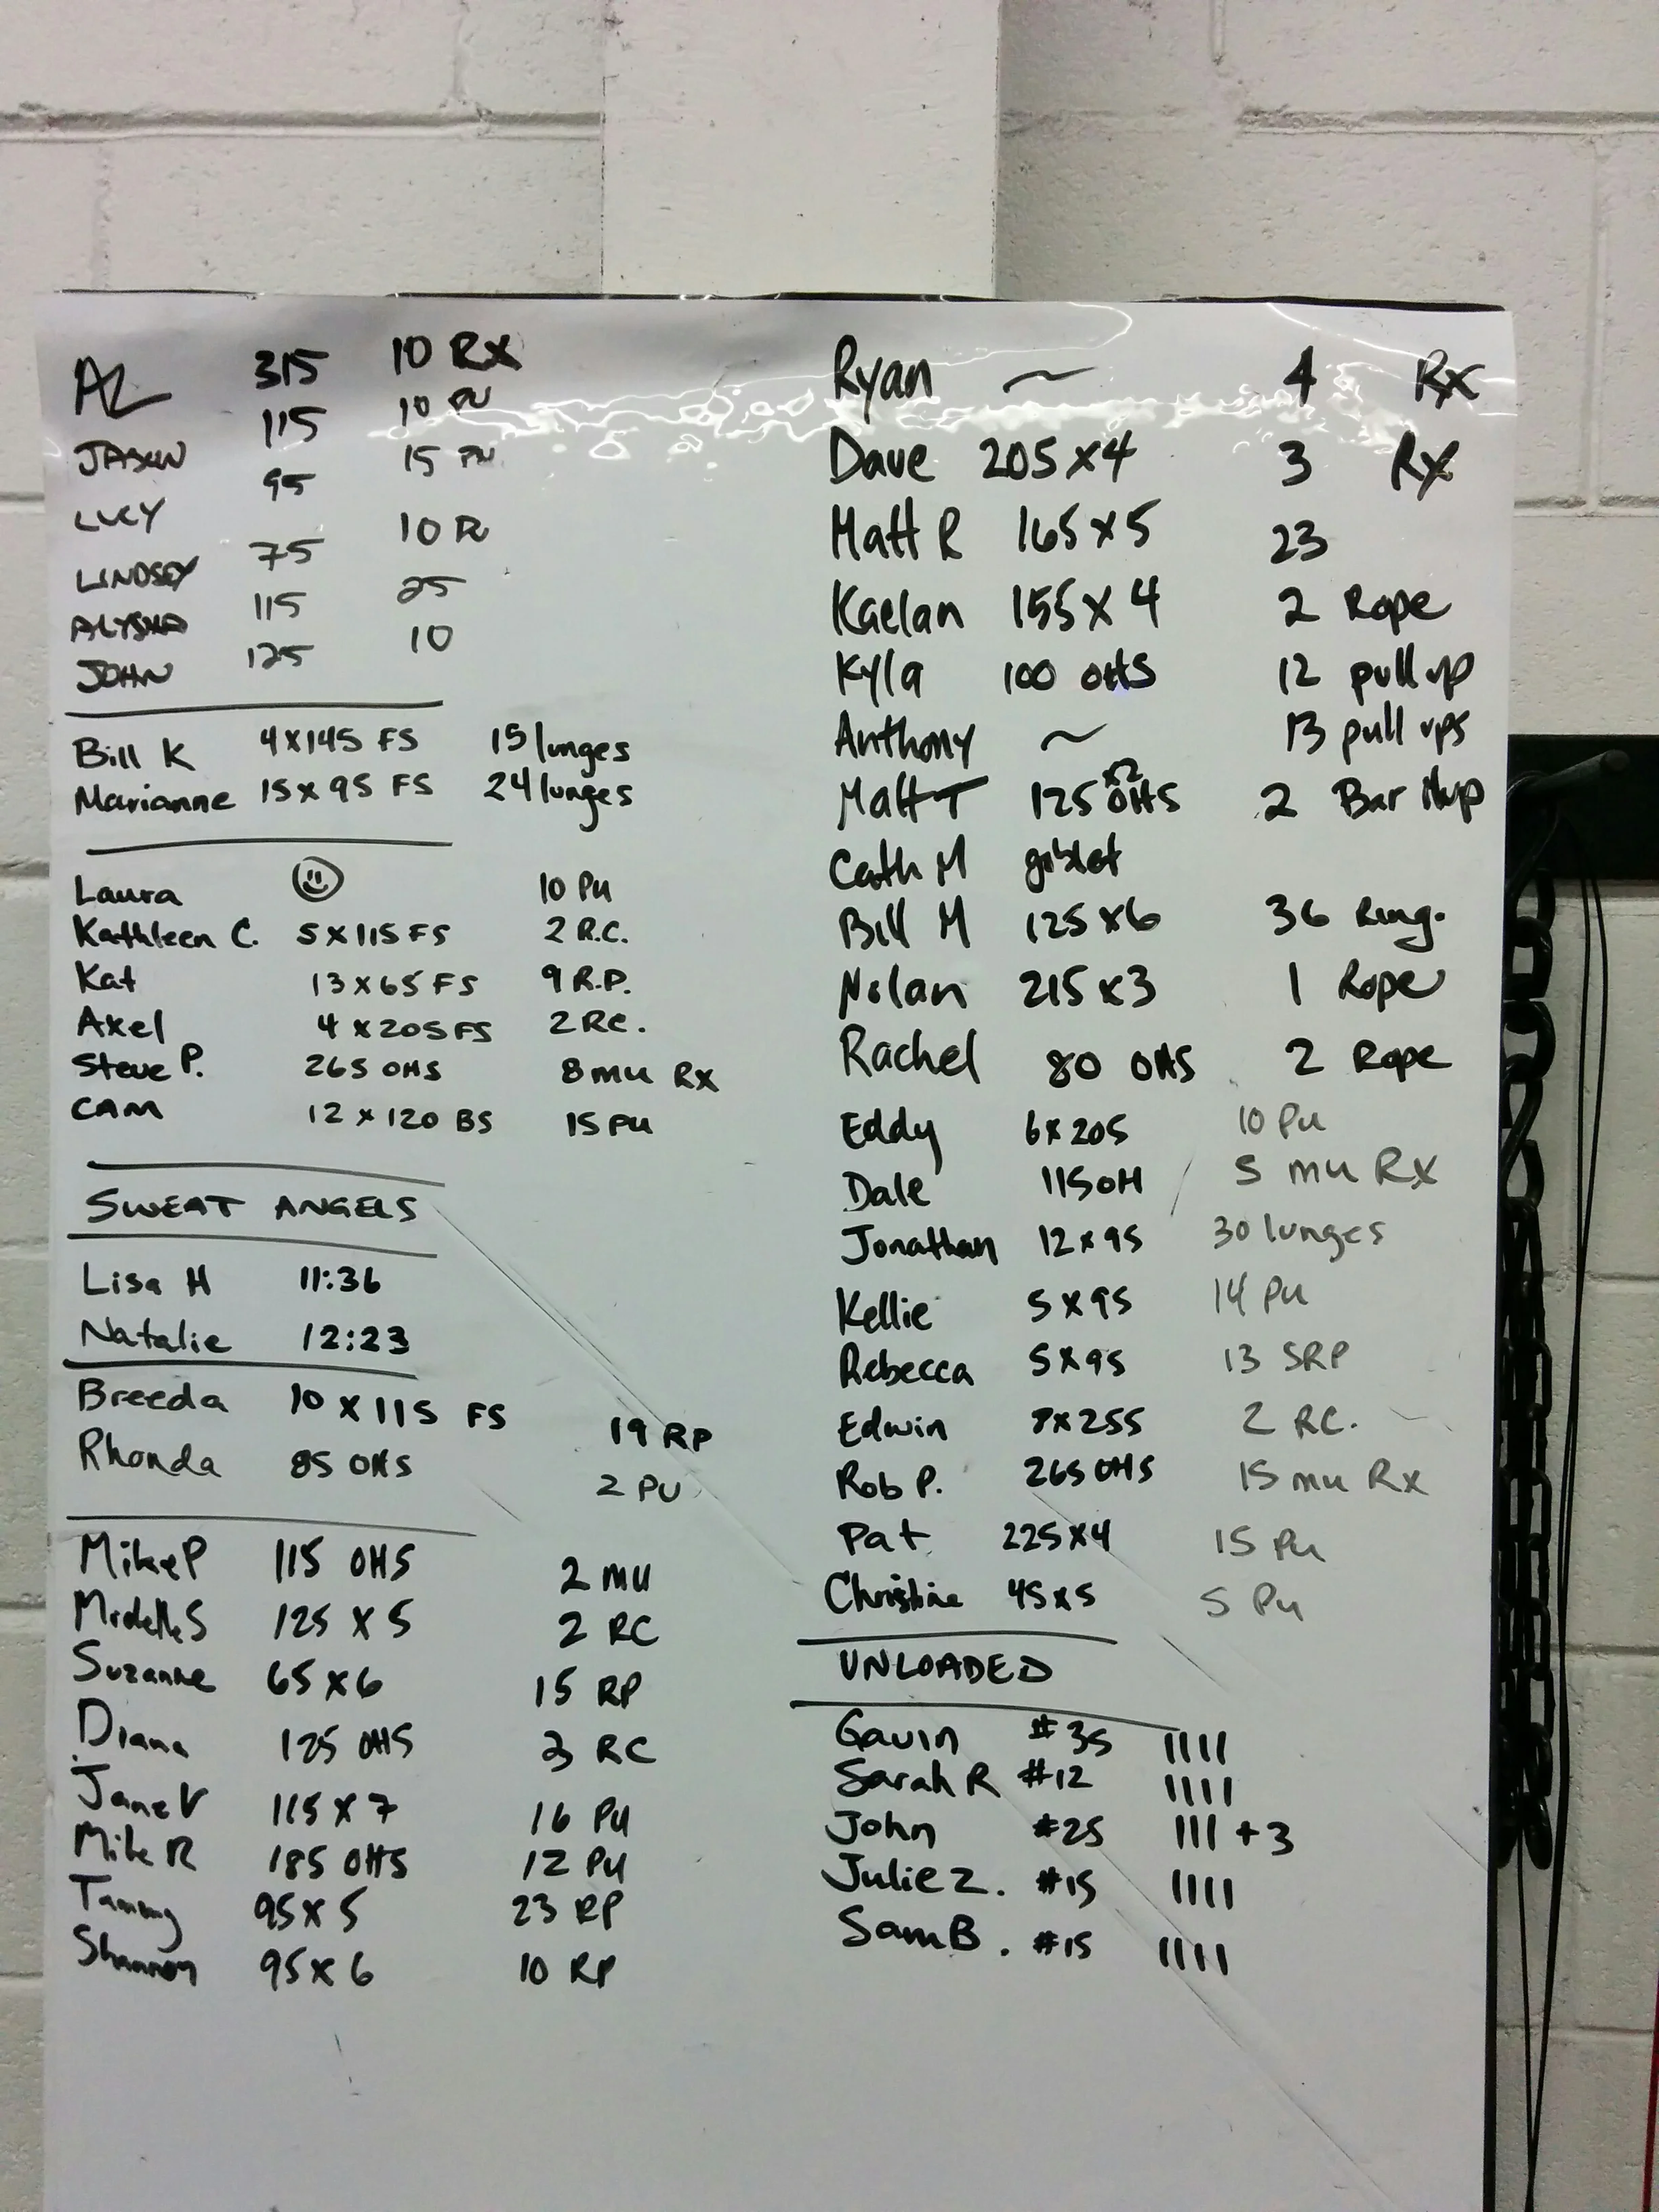 AZ 315 10 RX
JASON 115 10 PU
LUCY 95 15 PU
LINDSEY 75 10 PU
ALYSHA 115 25
JOHN 125 10
Bill K 4x145 FS 15 lunges
Marianne 15x95 FS 24 lunges
Laura 10 PU
Kathleen C. 5x115 FS 2 R.C.
Kat 13x65 FS 9 R.P.
Axel 4x205 FS 2 RC.
Steve P. 265 OHS 8 mu Rx
CAM 12x120 BS 15 PU
SWEAT ANGELS
Lisa H 11:36
Natalie 12:23
Breeda 10x115 FS 19 RP
Rhonda 85 OHS 2 PU
Mike P 115 OHS 2 MU
Michelle S 125x5 2 RC
Suzanne 65x6 15 RP
Diana 125 OHS 3 RC
Jane V 115x7 16 PU
Mike R 185 OHS 12 PU
Tammy 95x5 23 RP
Shannon 95x6 10 RP
Ryan ~ 4 Rx
Dave 205x4 3 Rx
Matt R 165x5 23
Kaelan 155x4 2 Rope
Kyla 100 OHS 12 pull up
Anthony ~ 13 pull ups
Matt T 125 OHS x2 2 Bar Mup
Cath M giblet
Bill M 125x6 36 Ring.
Nolan 215x3 1 Rope
Rachel 80 OHS 2 Rope
Eddy 6x205 10 PU
Dale 115 OH 5 mu RX
Jonathan 12x95 30 lunges
Kellie 5x95 14 PU
Rebecca 5x95 13 SRP
Edwin 255 2 RC.
Rob P. 265 OHS 15 mu Rx
Pat 225x4 15 PU
Christine 45x5 5 PU
UNLOADED
Gavin #35 ||||
Sarah R #12 ||||
John #25 ||| +3
Julie Z. #15 ||||
Sam B. #15 ||||